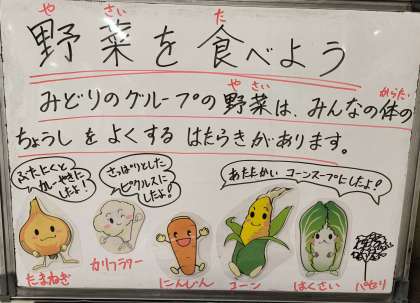 野菜を食べよう
や さい た
みどりのグループの野菜は、みんなの体の
や さい からだ
ちょうしをよくするはたらきがあります。
さっぱりとした
ピクルスに
したよ!
あたたかい コーンスープにしたよ!
たまねぎ
カリフラワー
にんじん
コーン
はくさい
パセリ